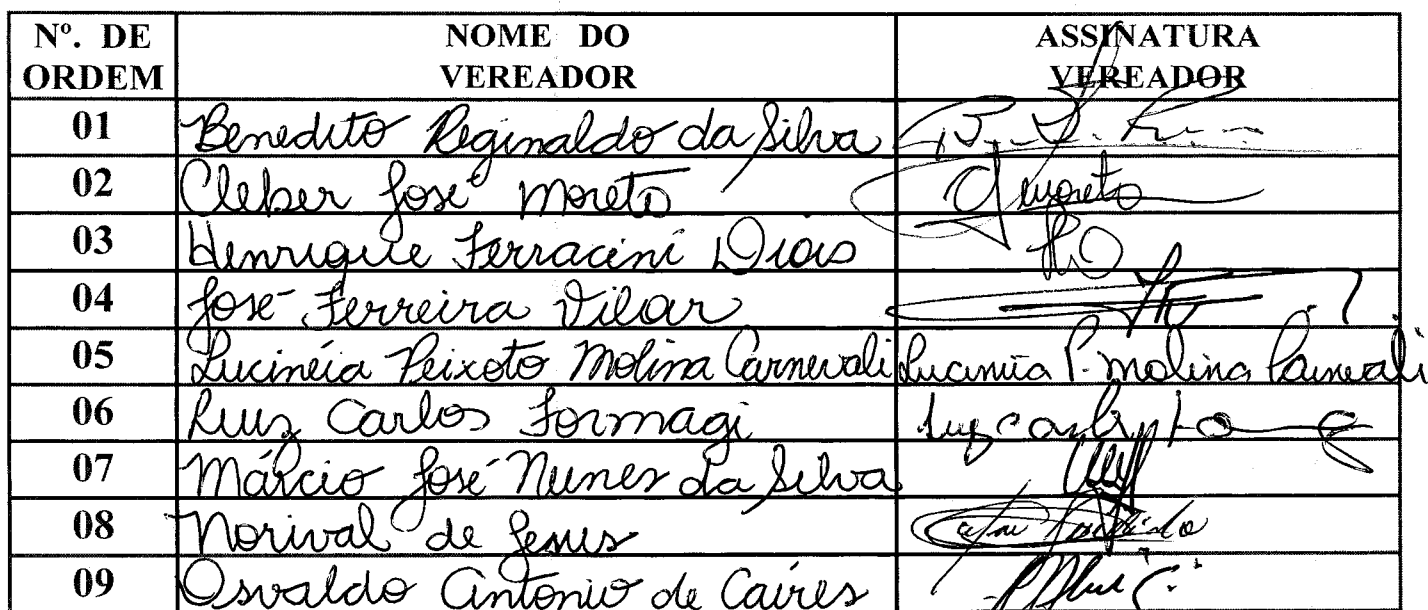 Nº. DE ORDEM NOME DO VEREADOR ASSINATURA VEREADOR
01 Benedito Reginaldo da Silva
02 Cleber José Moreto
03 Henrique Ferracini Dias
04 José Ferreira Vilar
05 Lucinéia Peixoto Molina Carnevali Lucinéia P. Molina Carnevali
06 Luiz Carlos Formagi
07 Márcio José Nunes da Silva
08 Norival de Jesus
09 Osvaldo Antonio de Caires